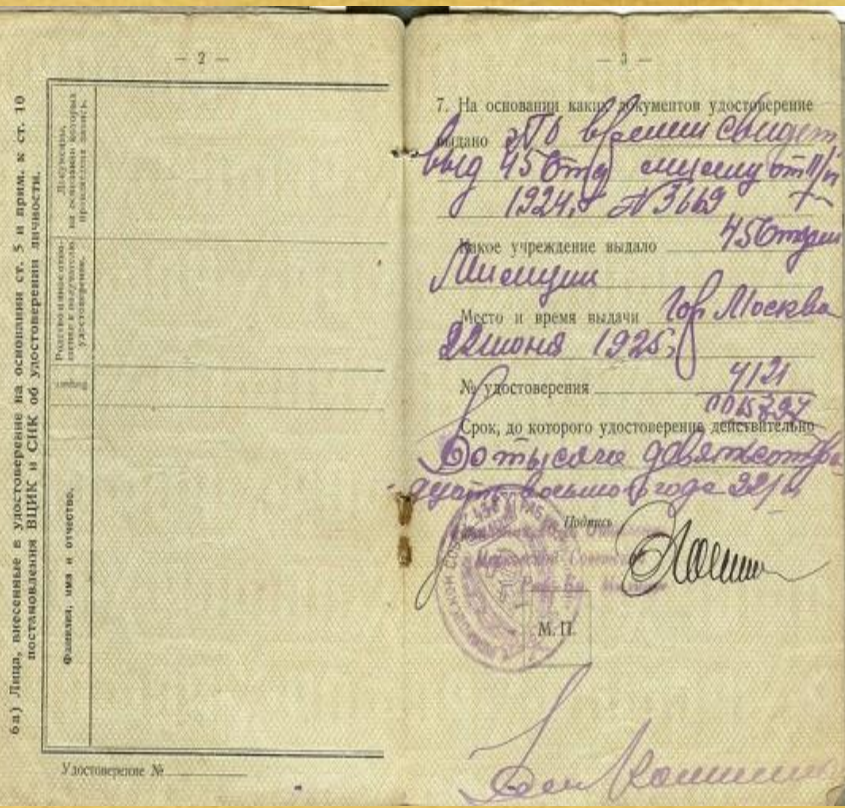 — 2 —
6а) Лица, внесенные в удостоверение на основании ст. 5 и прим. к ст. 10
постановления ВЦИК и СНК об удостоверении личности.
Фамилия, имя и отчество.
Возраст
Родственное отно-
шение к получателю
удостоверения.
Документы,
на основании которых
произведена запись.
Удостоверение №
— 3 —
7. На основании каких документов удостоверение
выдано По времен свидет
выд 45 Отд милиц от
1924 г № 3669
Какое учреждение выдало 45 Отдел
Милиции
Место и время выдачи Гор Москва
22 июня 1925 г
№ удостоверения 4121
Срок, до которого удостоверение действительно
До тысяча девятьсот два
дцать восьмого года 22/
Подпись
М. П.